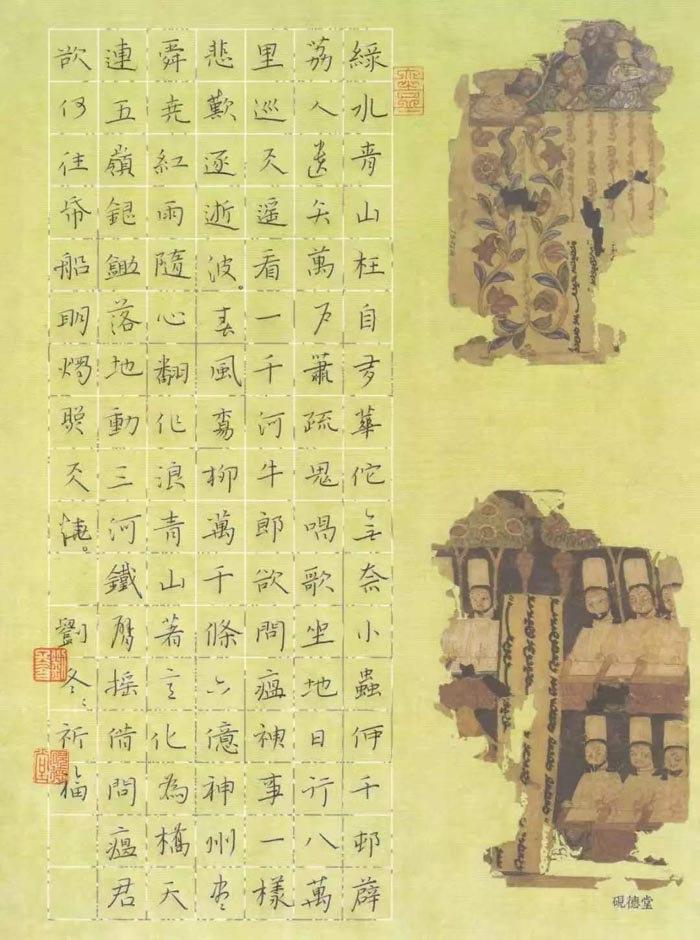 綠水青山枉自多華佗無奈小蟲何千邨薜
荔人遺矢萬戶蕭疏鬼唱歌坐地日行八萬
里巡天遙看一千河牛郎欲問瘟神事一樣
悲歡逐逝波。春風楊柳萬千條六億神州盡
舜尧紅雨隨心翻作浪青山著意化為橋天
連五嶺銀鋤落地動三河鐵臂搖借問瘟君
欲何往帋船明燭照天燒。
劉冬冬祈福
硯德堂